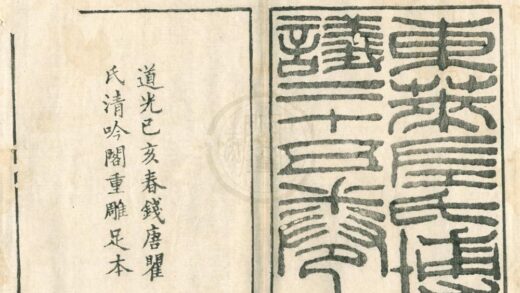 東萊呂氏博
議二十五卷
道光己亥春錢唐瞿
氏清吟閣重雕足本